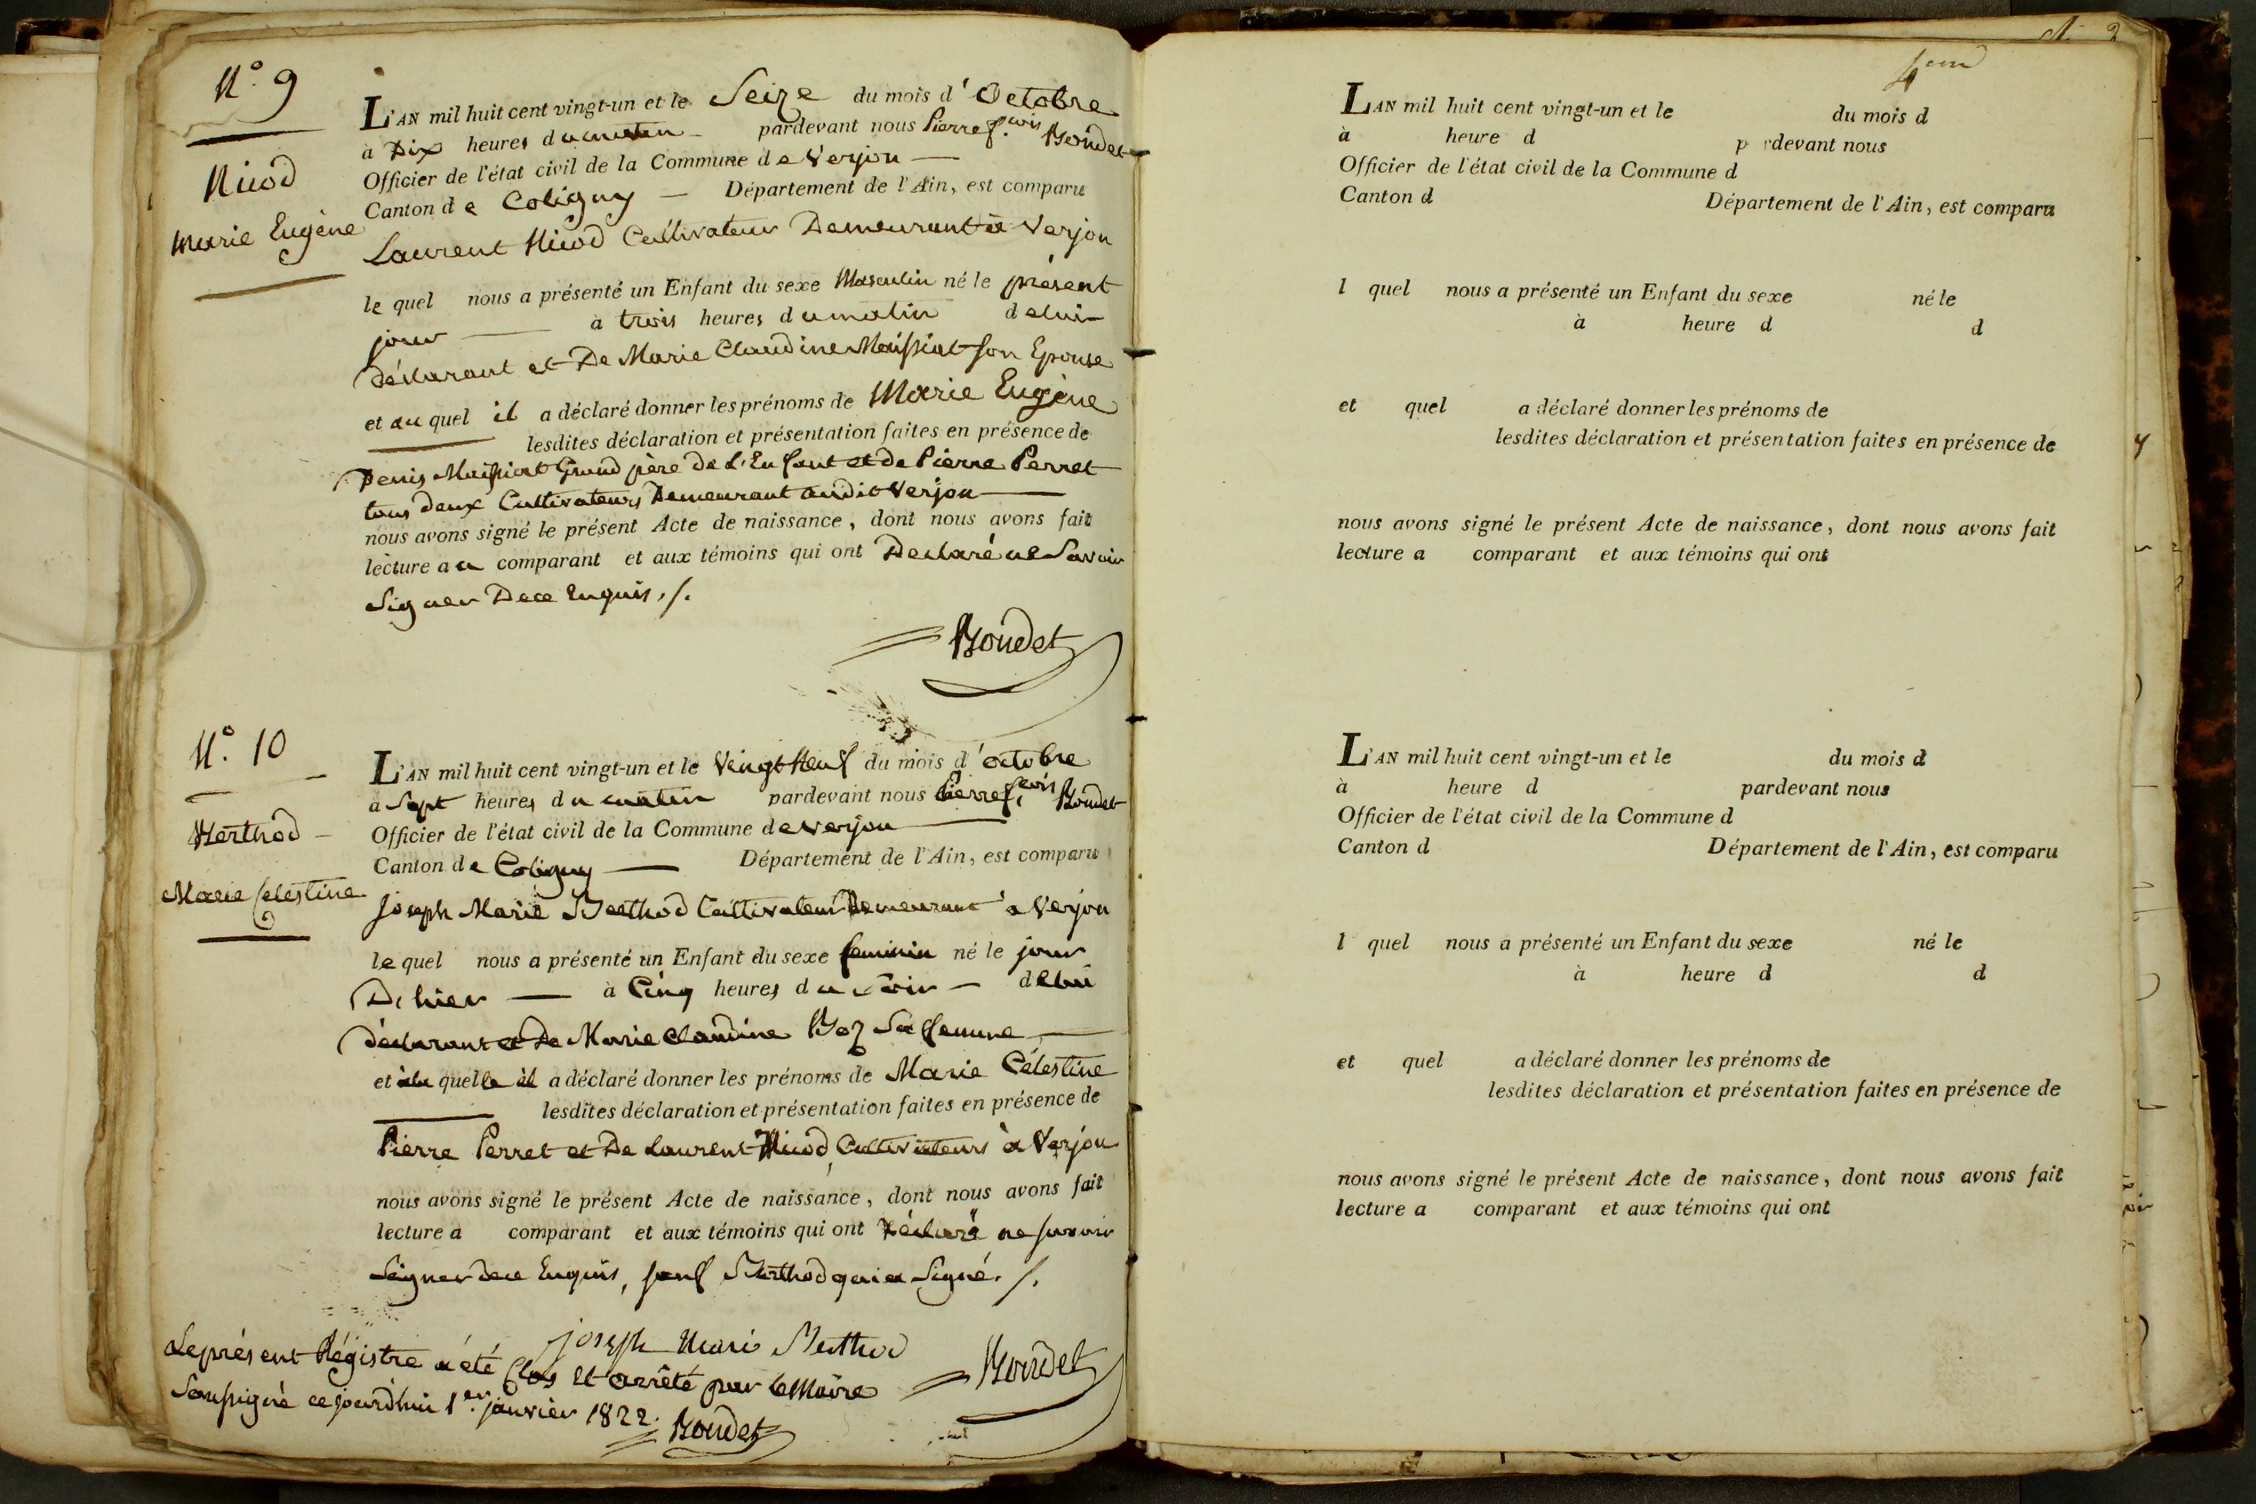 N.° 9
Nicod
Marie Eugène
L'AN mil huit cent vingt-un et le Seize du mois d'Octobre
à Dix heures du matin pardevant nous Pierre f.cois Boudet
Officier de l'état civil de la Commune de Verjon
Canton de Coligny Département de l'Ain, est comparu
Laurent Nicod Cultivateur Demeurant à Verjon
le quel nous a présenté un Enfant du sexe Masculin né le présent
jour à trois heures du matin de lui
déclarant et De Marie Claudine Maissiat son Epouse
et au quel il a déclaré donner les prénoms de Marie Eugène
lesdites déclaration et présentation faites en présence de
Denis Maissiat Grand père de L'Enfant et de Pierre Perret
tous deux Cultivateurs Demeurant audit Verjon
nous avons signé le présent Acte de naissance, dont nous avons fait
lecture au comparant et aux témoins qui ont Déclaré ne Savoir
Signer De ce Enquis ./.
Boudet
N.° 10
Berthod
Marie Celestine
L'AN mil huit cent vingt-un et le Vingt Neuf du mois d'octobre
à Sept heures du matin pardevant nous Pierre f.cois Boudet
Officier de l'état civil de la Commune de Verjon
Canton de Coligny Département de l'Ain, est comparu
Joseph Marie Berthod Cultivateur Demeurant à Verjon
le quel nous a présenté un Enfant du sexe feminin né le jour
D'hier à Cinq heures du soir de lui
déclarant et De Marie Claudine Boz Sa femme
et à la quelle il a déclaré donner les prénoms de Marie Célestine
lesdites déclaration et présentation faites en présence de
Pierre Perret et De Laurent Nicod, Cultivateurs à Verjon
nous avons signé le présent Acte de naissance, dont nous avons fait
lecture a comparant et aux témoins qui ont Déclaré ne savoir
Signer de ce Enquis, sauf Berthod qui a Signé. /.
joseph Marie Berthod
Boudet
Le présent Régistre a été Clos et arrêté par le Maire
Soussigné ce jourd'hui 1.er janvier 1822.
Boudet
L'AN mil huit cent vingt-un et le du mois d
à heure d pardevant nous
Officier de l'état civil de la Commune d
Canton d Département de l'Ain, est comparu
l quel nous a présenté un Enfant du sexe né le
à heure d d
et quel a déclaré donner les prénoms de
lesdites déclaration et présentation faites en présence de
nous avons signé le présent Acte de naissance, dont nous avons fait
lecture a comparant et aux témoins qui ont
L'AN mil huit cent vingt-un et le du mois d
à heure d pardevant nous
Officier de l'état civil de la Commune d
Canton d Département de l'Ain, est comparu
l quel nous a présenté un Enfant du sexe né le
à heure d d
et quel a déclaré donner les prénoms de
lesdites déclaration et présentation faites en présence de
nous avons signé le présent Acte de naissance, dont nous avons fait
lecture a comparant et aux témoins qui ont